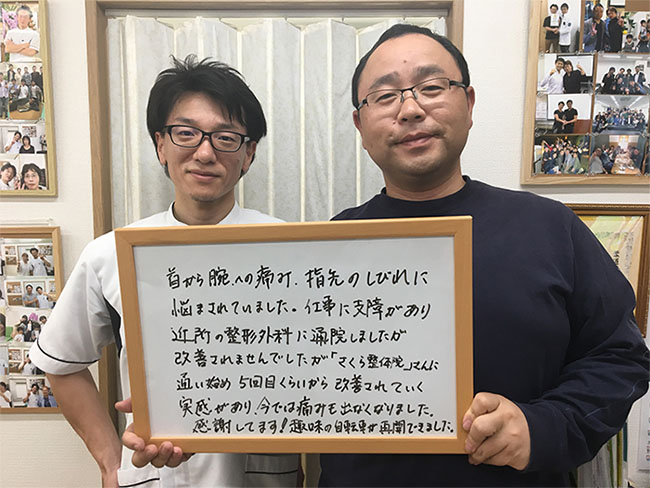 首から腕への痛み、指先のしびれに
悩まされていました。仕事に支障があり
近所の整形外科に通院しましたが
改善されませんでしたが「さくら整体院」さんに
通い始め 5回目くらいから 改善されていく
実感があり、今では痛みも出なくなりました。
感謝してます!趣味の自転車が再開できました。